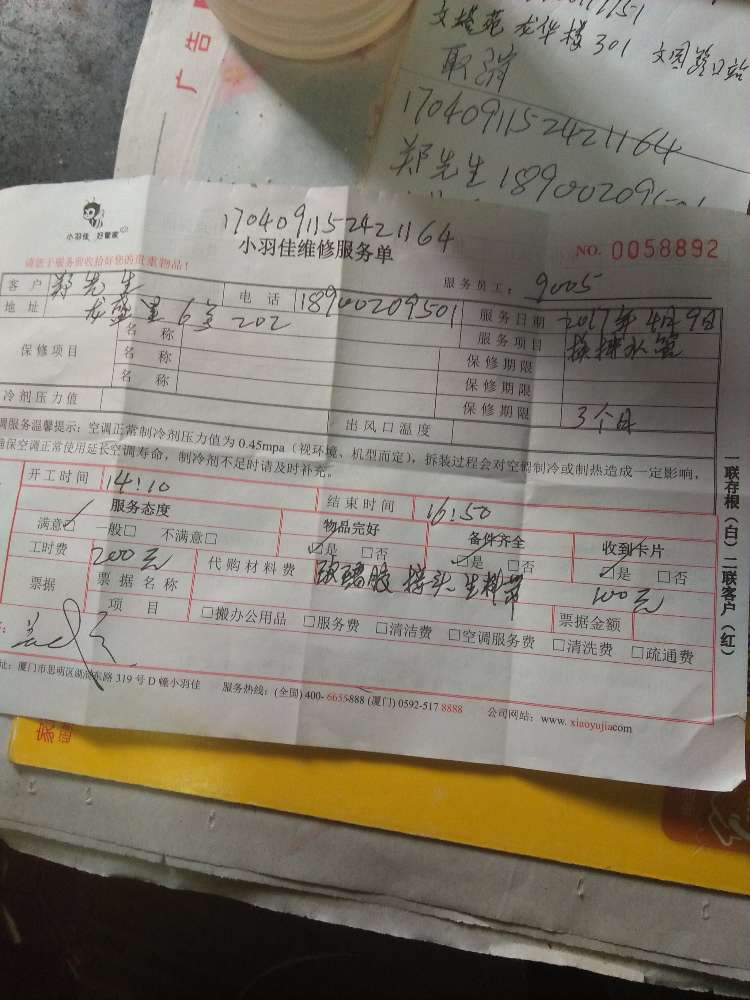 文园路口站
龙华楼301
取消
1704091152421164
郑先生 189002095
广告
1704091152421164
小羽佳 好管家
小羽佳维修服务单
NO. 0058892
请您于服务前收拾好您的贵重物品！
服务员工：9005
客户 郑先生 电话 18900209501 服务日期 2017年4月9日
地址 龙盛里6号202 服务项目 换排水管
保修项目 名称 保修期限
名称 保修期限
名称 保修期限 3个月
冷剂压力值 出风口温度
调服务温馨提示：空调正常制冷剂压力值为0.45mpa（视环境、机型而定），拆装过程会对空调制冷或制热造成一定影响，
确保空调正常使用延长空调寿命，制冷剂不足时请及时补充。
开工时间 14:10 结束时间 16:50
服务态度 物品完好 备件齐全 收到卡片
满意☑ 一般□ 不满意□ ☑是 □否 ☑是 □否 ☑是 □否
工时费 200元 代购材料费 玻璃胶 接头 生料带 100元
票据 票据名称 票据金额
项目 □搬办公用品 □服务费 □清洁费 □空调服务费 □清洗费 □疏通费
址：厦门市思明区湖滨东路319号D幢小羽佳 服务热线：(全国)400-6655888 (厦门)0592-517 8888 公司网站：www.xiaoyujia.com
一联存根（白）二联客户（红）